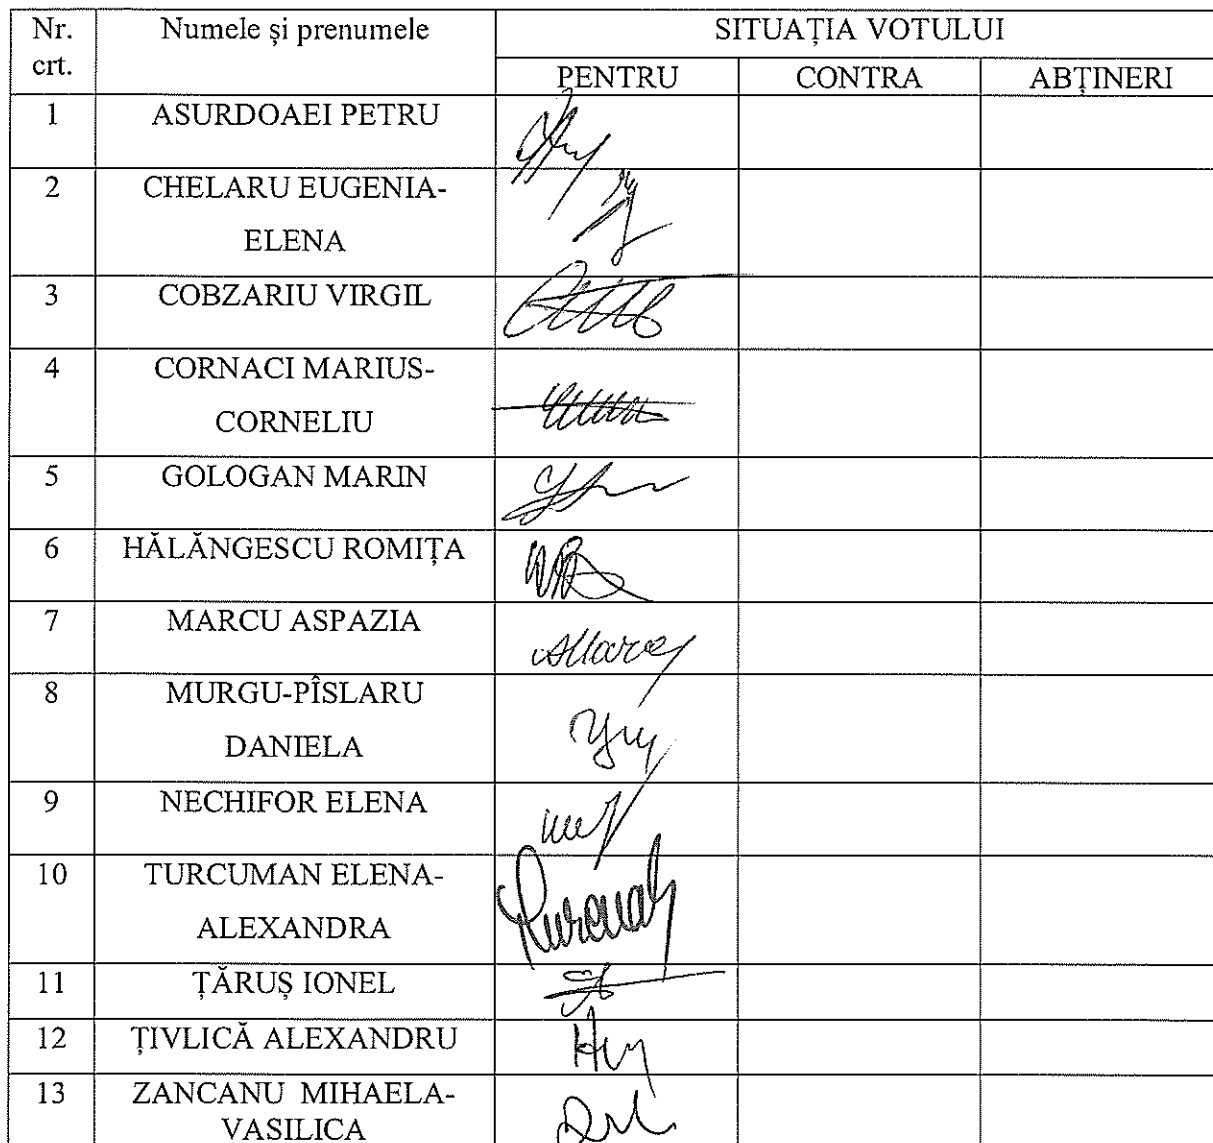 Nr. Numele și prenumele SITUAȚIA VOTULUI
crt. PENTRU CONTRA ABȚINERI
1 ASURDOAEI PETRU
2 CHELARU EUGENIA-
ELENA
3 COBZARIU VIRGIL
4 CORNACI MARIUS-
CORNELIU
5 GOLOGAN MARIN
6 HĂLĂNGESCU ROMIȚA
7 MARCU ASPAZIA
8 MURGU-PÎSLARU
DANIELA
9 NECHIFOR ELENA
10 TURCUMAN ELENA-
ALEXANDRA
11 ȚĂRUȘ IONEL
12 ȚIVLICĂ ALEXANDRU
13 ZANCANU MIHAELA-
VASILICA